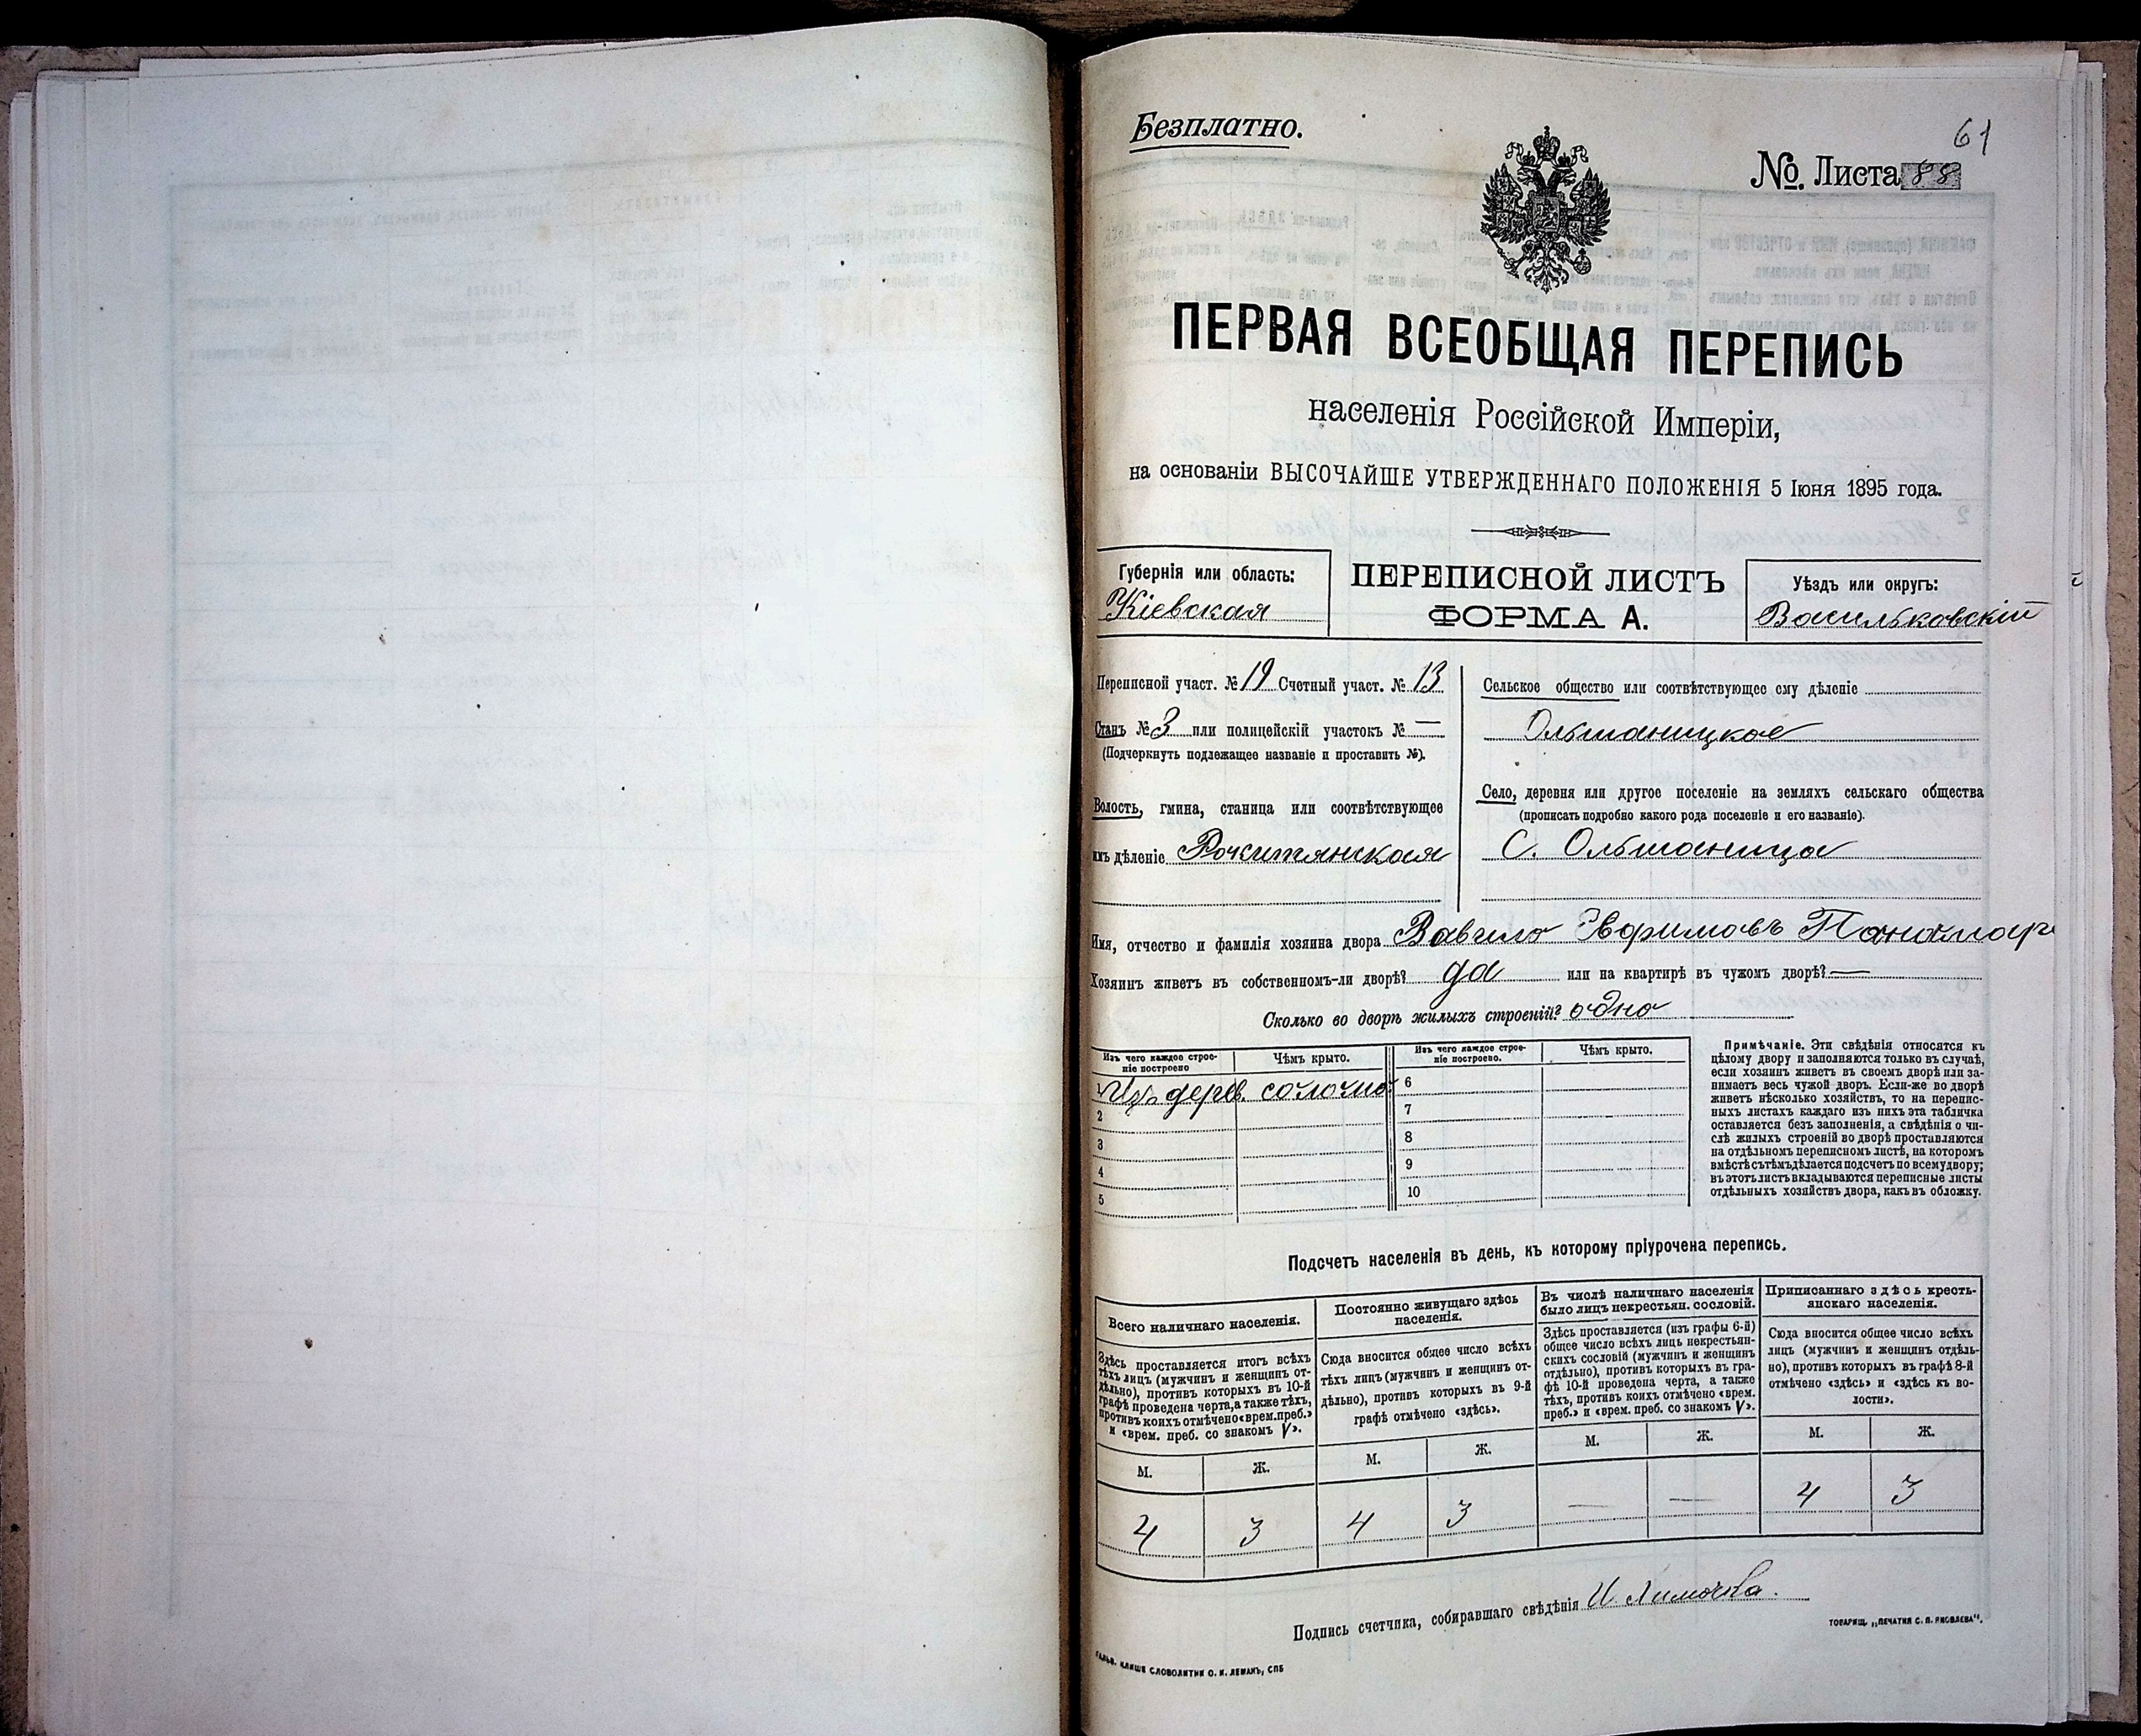 61
Безплатно.
№. Листа 88
ПЕРВАЯ ВСЕОБЩАЯ ПЕРЕПИСЬ
населенія Россійской Имперіи,
на основаніи ВЫСОЧАЙШЕ УТВЕРЖДЕННАГО ПОЛОЖЕНІЯ 5 Іюня 1895 года.
Губернія или область:
Кіевская
ПЕРЕПИСНОЙ ЛИСТЪ
ФОРМА А.
Уѣздъ или округъ:
Васильковскій
Переписной участ. № 19 Счетный участ. № 13
Станъ № 3 или полицейскій участокъ № —
(Подчеркнуть подлежащее названіе и проставить №).
Волость, гмина, станица или соотвѣтствующее
имъ дѣленіе Рокитянская
Сельское общество или соотвѣтствующее ему дѣленіе
Ольшаницкое
Село, деревня или другое поселеніе на земляхъ сельскаго общества
(прописать подробно какого рода поселеніе и его названіе).
С. Ольшаница
Имя, отчество и фамилія хозяина двора Вавило Эфримовъ
Хозяинъ живетъ въ собственномъ-ли дворѣ? да или на квартирѣ въ чужомъ дворѣ? —
Сколько во дворѣ жилыхъ строеній? одно
Изъ чего каждое строе-
ніе построено
Чѣмъ крыто.
Изъ чего каждое строе-
ніе построено.
Чѣмъ крыто.
Изъ дерев. солома
2
3
4
5
6
7
8
9
10
Примѣчаніе. Эти свѣдѣнія относятся къ
цѣлому двору и заполняются только въ случаѣ,
если хозяинъ живетъ въ своемъ дворѣ или за-
нимаетъ весь чужой дворъ. Если-же во дворѣ
живетъ нѣсколько хозяйствъ, то на перепис-
ныхъ листахъ каждаго изъ нихъ эта табличка
оставляется безъ заполненія, а свѣдѣнія о чи-
слѣ жилыхъ строеній во дворѣ проставляются
на отдѣльномъ переписномъ листѣ, на которомъ
вмѣстѣ съ тѣмъ дѣлается подсчетъ по всему двору;
въ этотъ листъ вкладываются переписные листы
отдѣльныхъ хозяйствъ двора, какъ въ обложку.
Подсчетъ населенія въ день, къ которому пріурочена перепись.
Всего наличнаго населенія.
Здѣсь проставляется итогъ всѣхъ
тѣхъ лицъ (мужчинъ и женщинъ от-
дѣльно), противъ которыхъ въ 10-й
графѣ проведена черта, а также тѣхъ,
противъ коихъ отмѣчено «врем. преб.»
и «врем. преб. со знакомъ V».
М. Ж.
4 3
Постоянно живущаго здѣсь
населенія.
Сюда вносится общее число всѣхъ
тѣхъ лицъ (мужчинъ и женщинъ от-
дѣльно), противъ которыхъ въ 9-й
графѣ отмѣчено «здѣсь».
М. Ж.
4 3
Въ числѣ наличнаго населенія
было лицъ некрестьян. сословій.
Здѣсь проставляется (изъ графы 6-й)
общее число всѣхъ лицъ некрестьян-
скихъ сословій (мужчинъ и женщинъ
отдѣльно), противъ которыхъ въ гра-
фѣ 10-й проведена черта, а также
тѣхъ, противъ коихъ отмѣчено «врем.
преб.» и «врем. преб. со знакомъ V».
М. Ж.
— —
Приписаннаго здѣсь кресть-
янскаго населенія.
Сюда вносится общее число всѣхъ
лицъ (мужчинъ и женщинъ отдѣль-
но), противъ которыхъ въ графѣ 8-й
отмѣчено «здѣсь» и «здѣсь къ во-
лости».
М. Ж.
4 3
Подпись счетчика, собиравшаго свѣдѣнія И.
ГАЛЬВ. КЛИШЕ СЛОВОЛИТНИ О. И. ЛЕМАНЪ, СПБ
ТОВАРИЩ. „ПЕЧАТНЯ С. П. ЯКОВЛЕВА“.